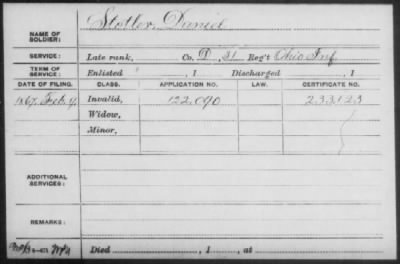 NAME OF SOLDIER: Stotler, Daniel
SERVICE: Late rank, Co. D, 31 Reg't Ohio Inf.
TERM OF SERVICE: Enlisted , 1 Discharged , 1
DATE OF FILING. CLASS. APPLICATION NO. LAW. CERTIFICATE NO.
1867, Feb. 9. Invalid, 122,090 233,123
Widow,
Minor,
ADDITIONAL SERVICES:
REMARKS:
Died , 1 , at